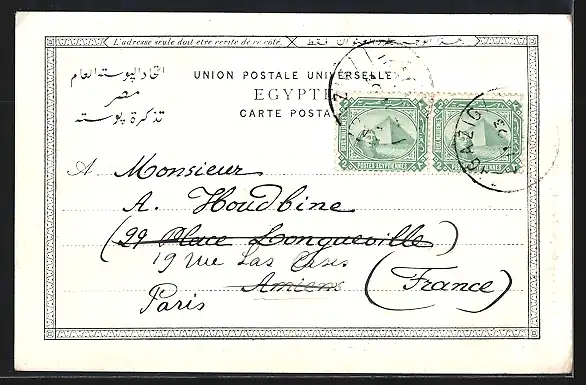 L'adresse seule doit être écrite de ce côté.
اتحاد البوسته العام
مصر
تذكرة بوسته
UNION POSTALE UNIVERSELLE
EGYPTE
CARTE POSTA
POSTES EGYPTIENNES
POSTES EGYPTIENNES
A Monsieur
A. Houdbine
(29 Place Longueville)
19 rue Las Cases
Amiens (France)
Paris